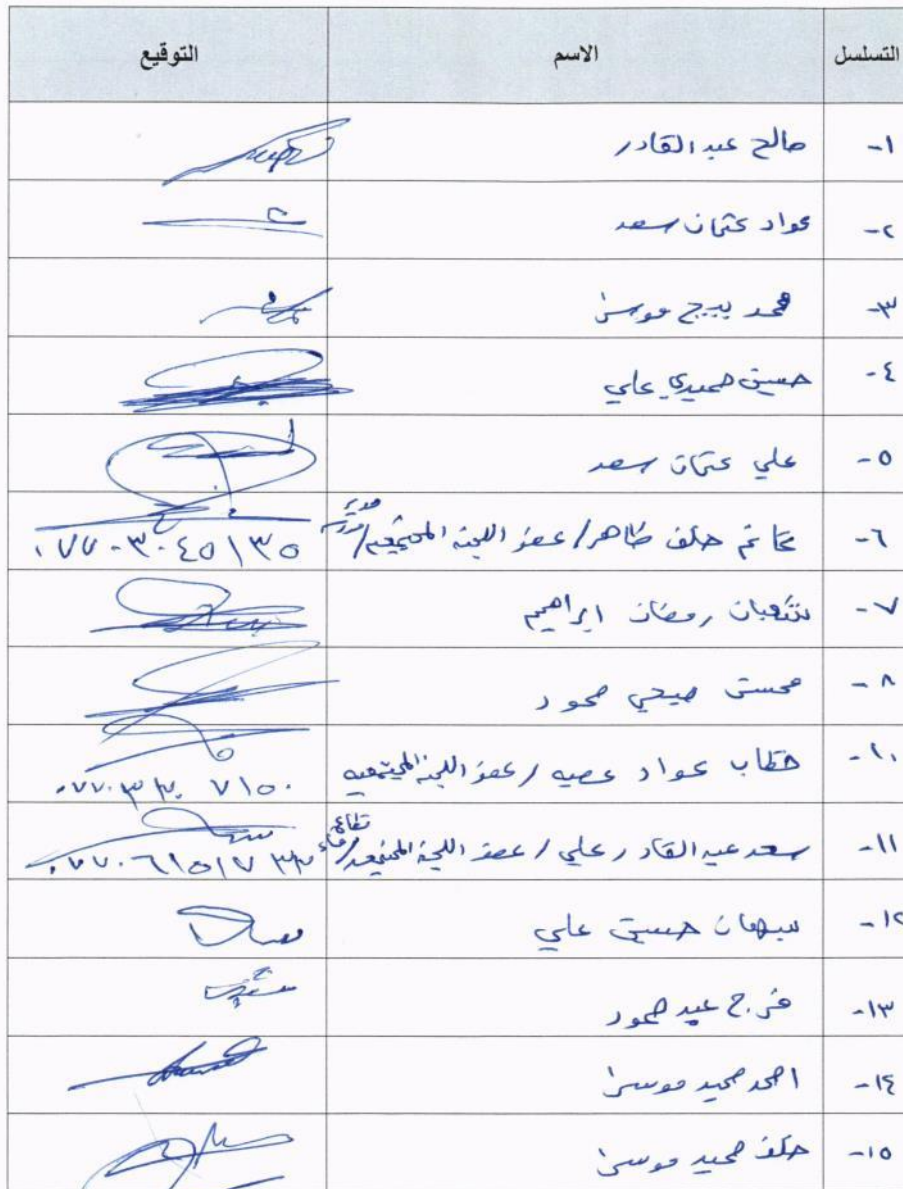 التسلسل الاسم التوقيع
١- صالح عبد القادر
٢- عواد عثمان سعد
٣- محمد بيج موسى
٤- حسين حميدي علي
٥- علي عثمان سعد
٦- غانم خلف ظاهر / عضو اللجنة المجتمعية / مدير ٠٧٧٠٣٠٤٥١٣٥
٧- شعبان رمضان ابراهيم
٨- محسن صبحي محمود
١٠- خطاب عواد عصيه / عضو اللجنة المجتمعيه ٠٧٧٠٣٣٠٧١٥٠
١١- سعد عبد القادر علي / عضو اللجنة المجتمعية / ٠٧٧٠٦١٥١٧٣٣
١٢- سبهان حسين علي
١٣- فرج عبيد حمود
١٤- احمد حميد موسى
١٥- خلف حميد موسى